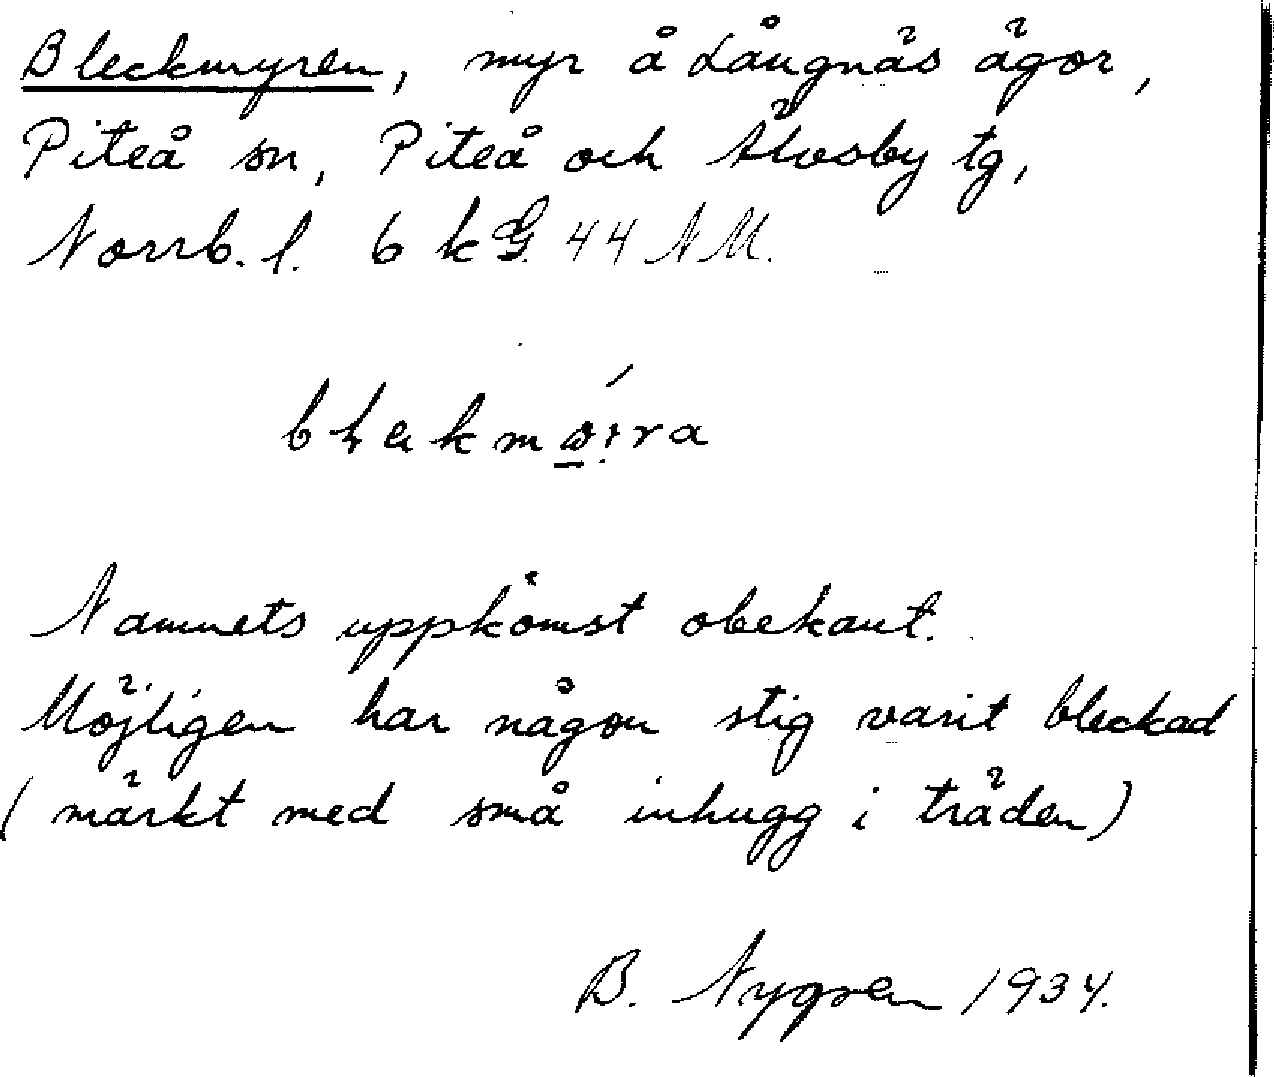 Bleckmyren, myr å Långnäs ägor,
Piteå sn, Piteå och Älvsby tg,
Norrb. l. 6 k G. 44 NM.
Namnets uppkomst obekant.
Möjligen har någon stig varit bleckad
(märkt med små inhugg i träden)
B. Nygren 1934.